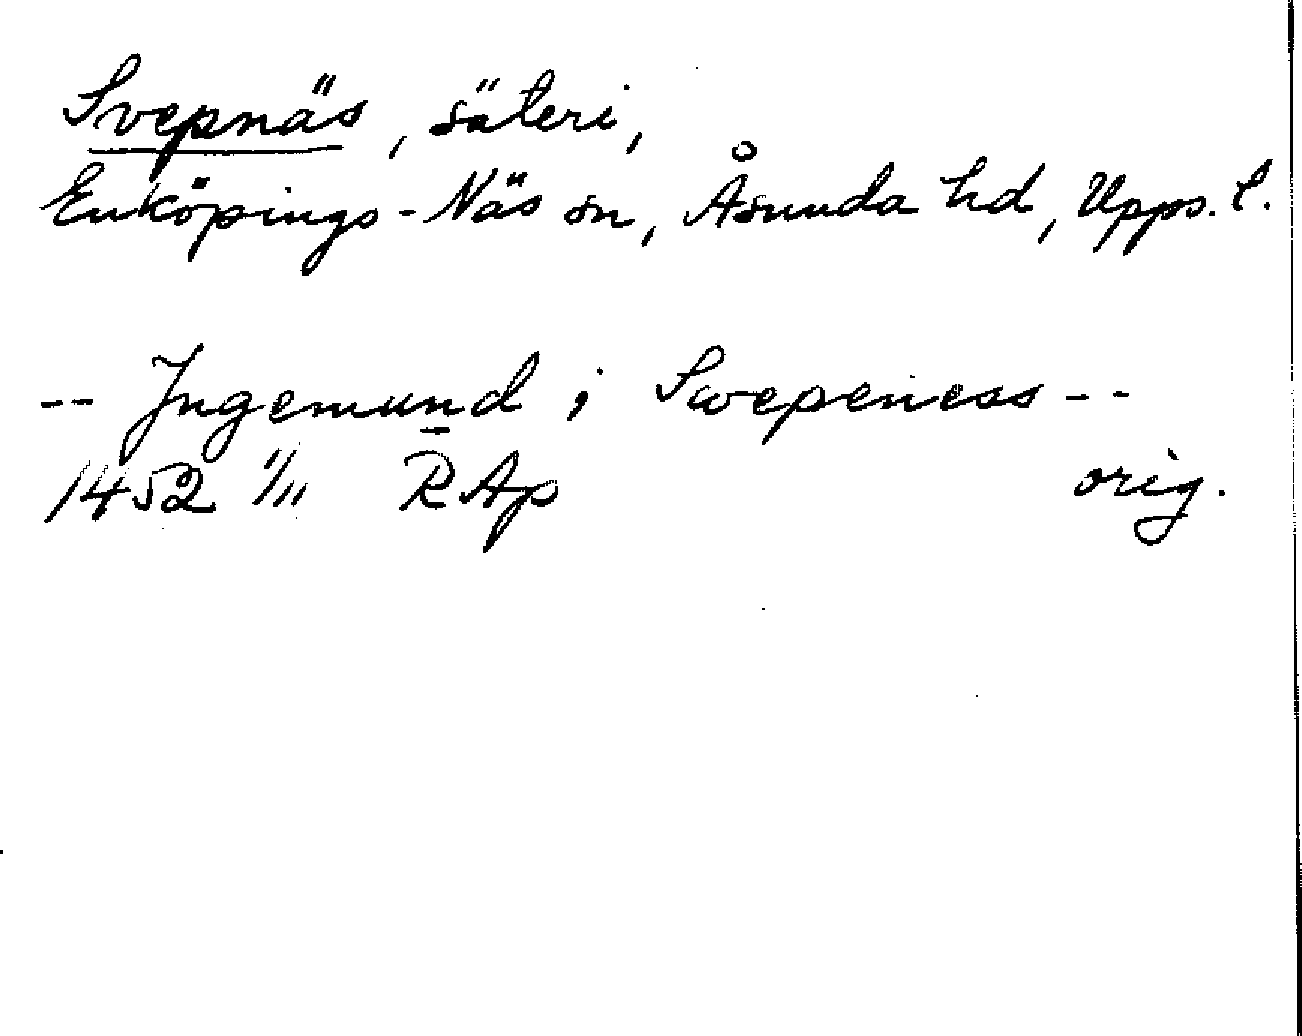 Svepnäs, säteri,
Enköpings-Näs sn, Åsunda hd, Upps. l.
-- Jngemund i Swepeness --
1452 1/11 RAp orig.